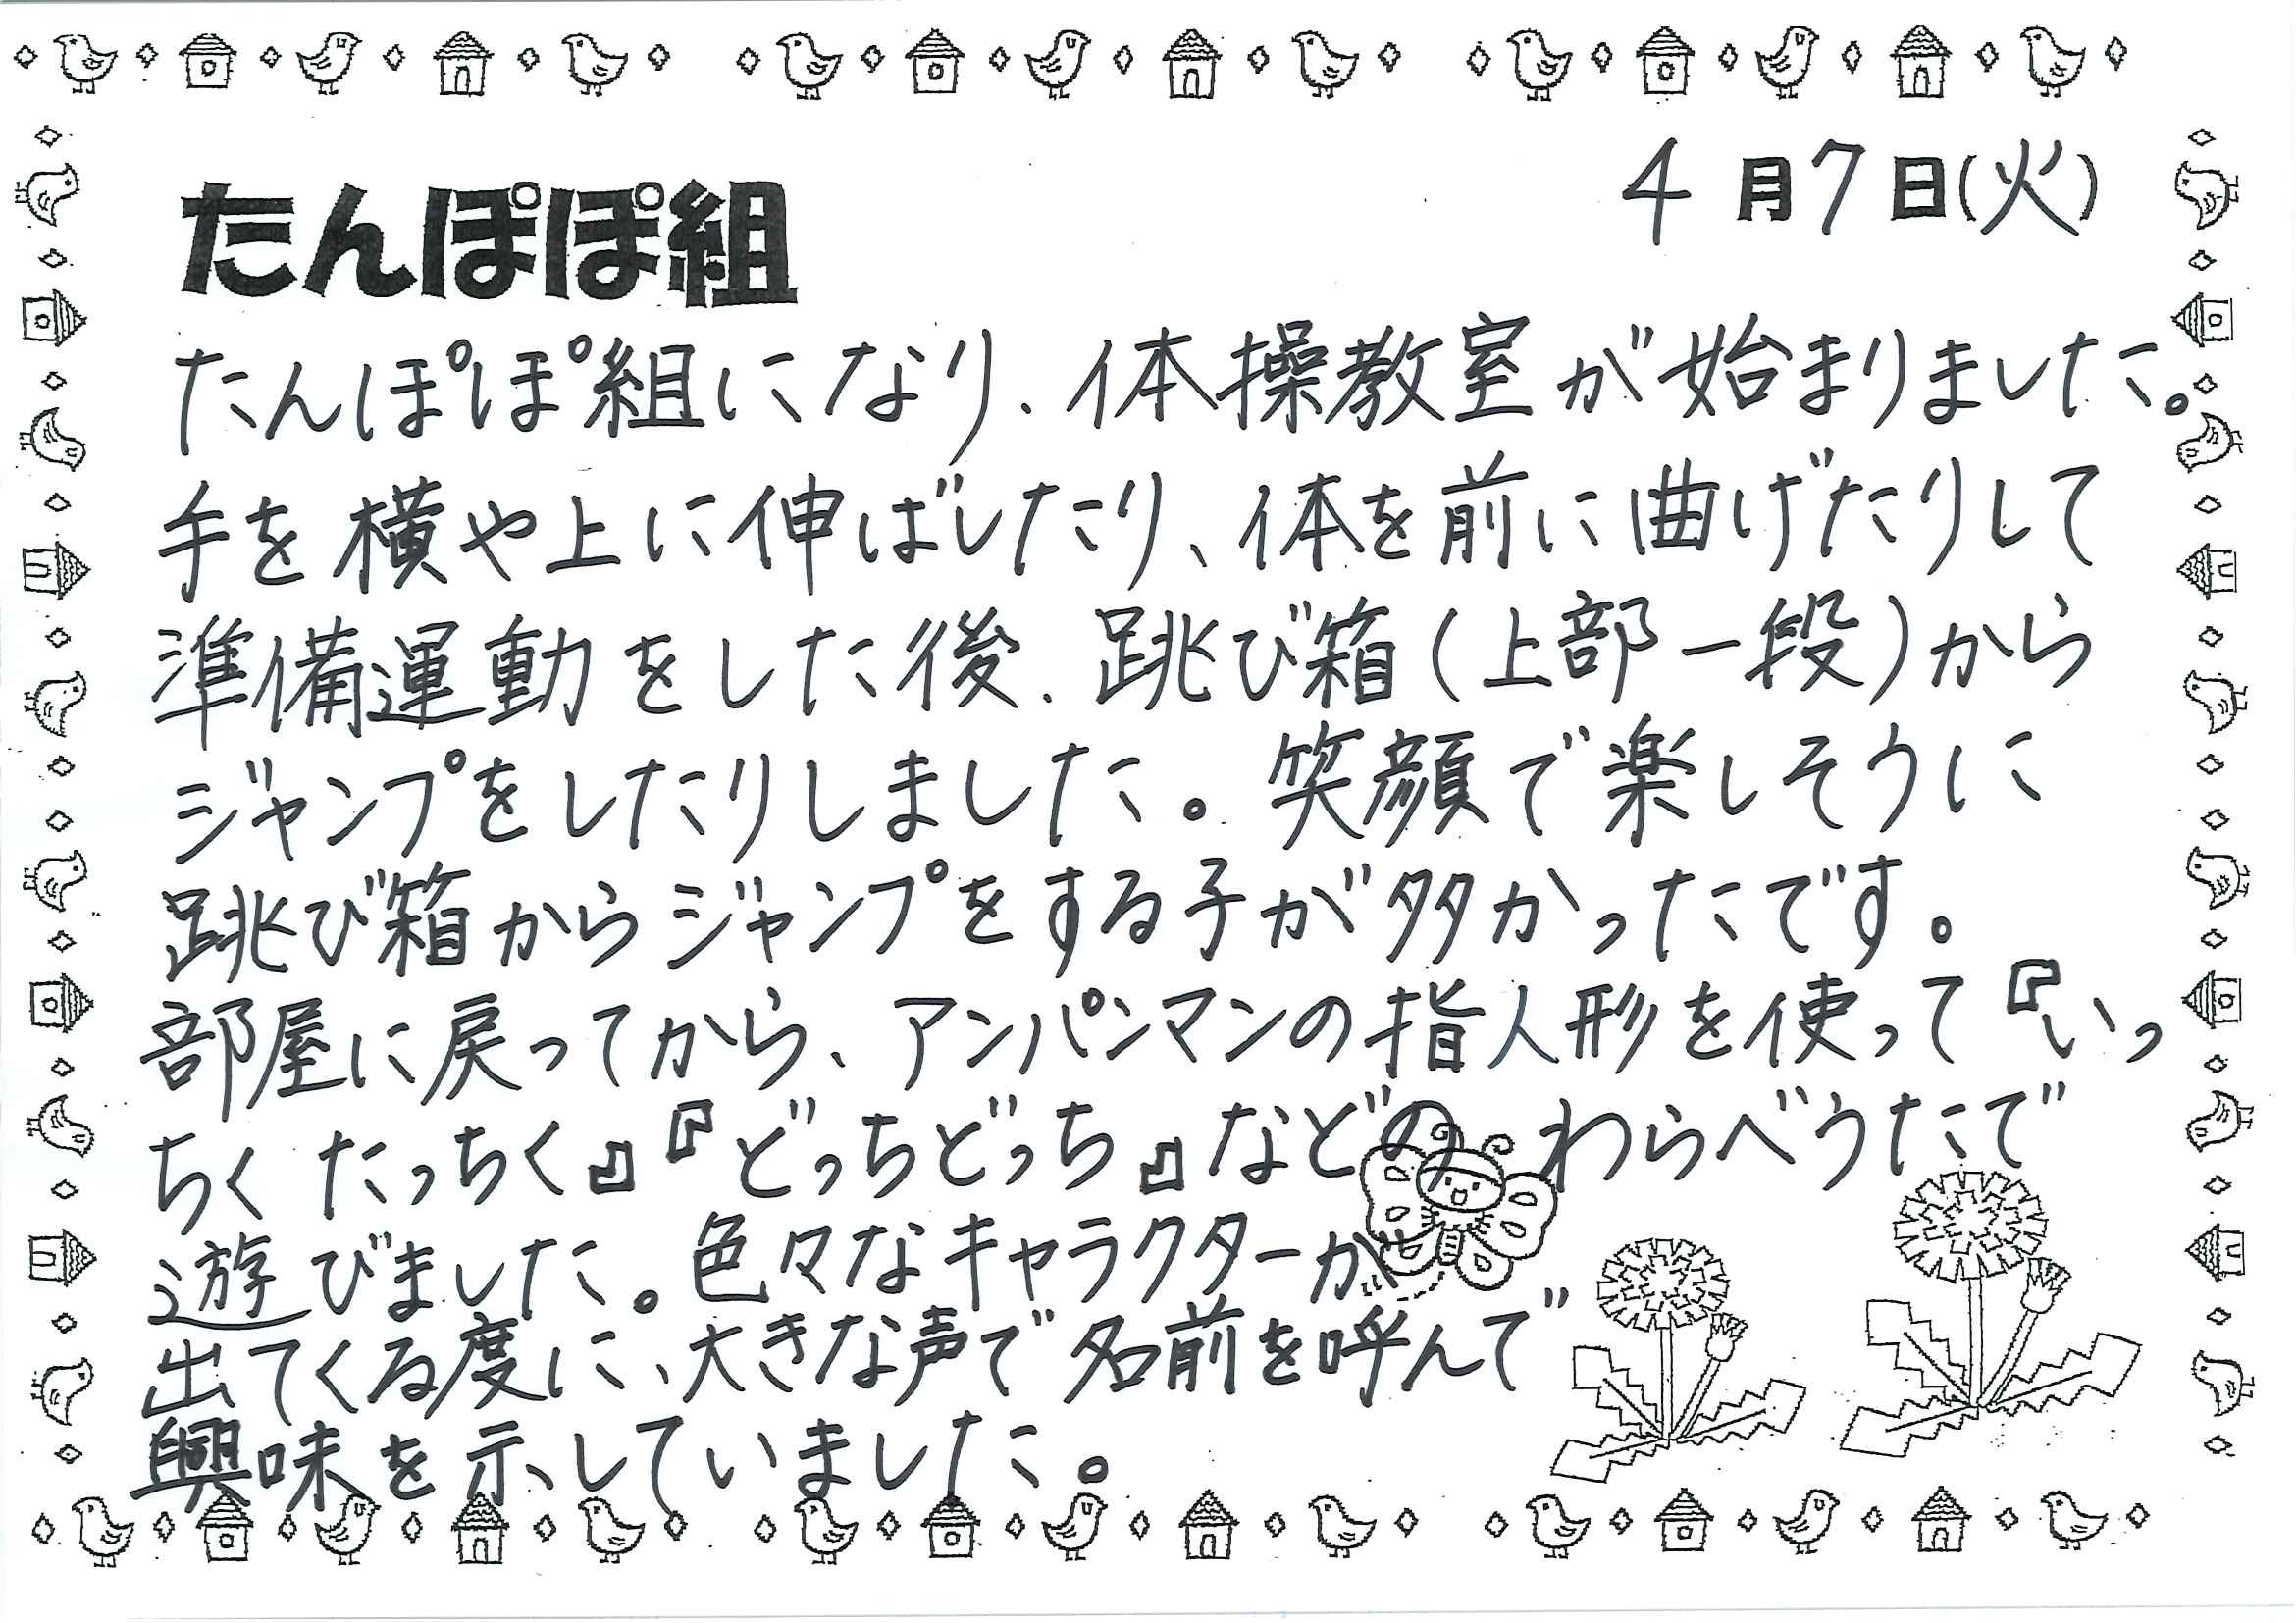 4月7日(火)
たんぽぽ組
たんぽぽ組になり、体操教室が始まりました。
手を横や上に伸ばしたり、体を前に曲げたりして
準備運動をした後、跳び箱(上部一段)から
ジャンプをしたりしました。笑顔で楽しそうに
跳び箱からジャンプをする子が多かったです。
部屋に戻ってから、アンパンマンの指人形を使って『いっ
ちくたっちく』『どっちどっち』などの わらべうたで
遊びました。色々なキャラクターが
出てくる度に、大きな声で名前を呼んで
興味を示していました。